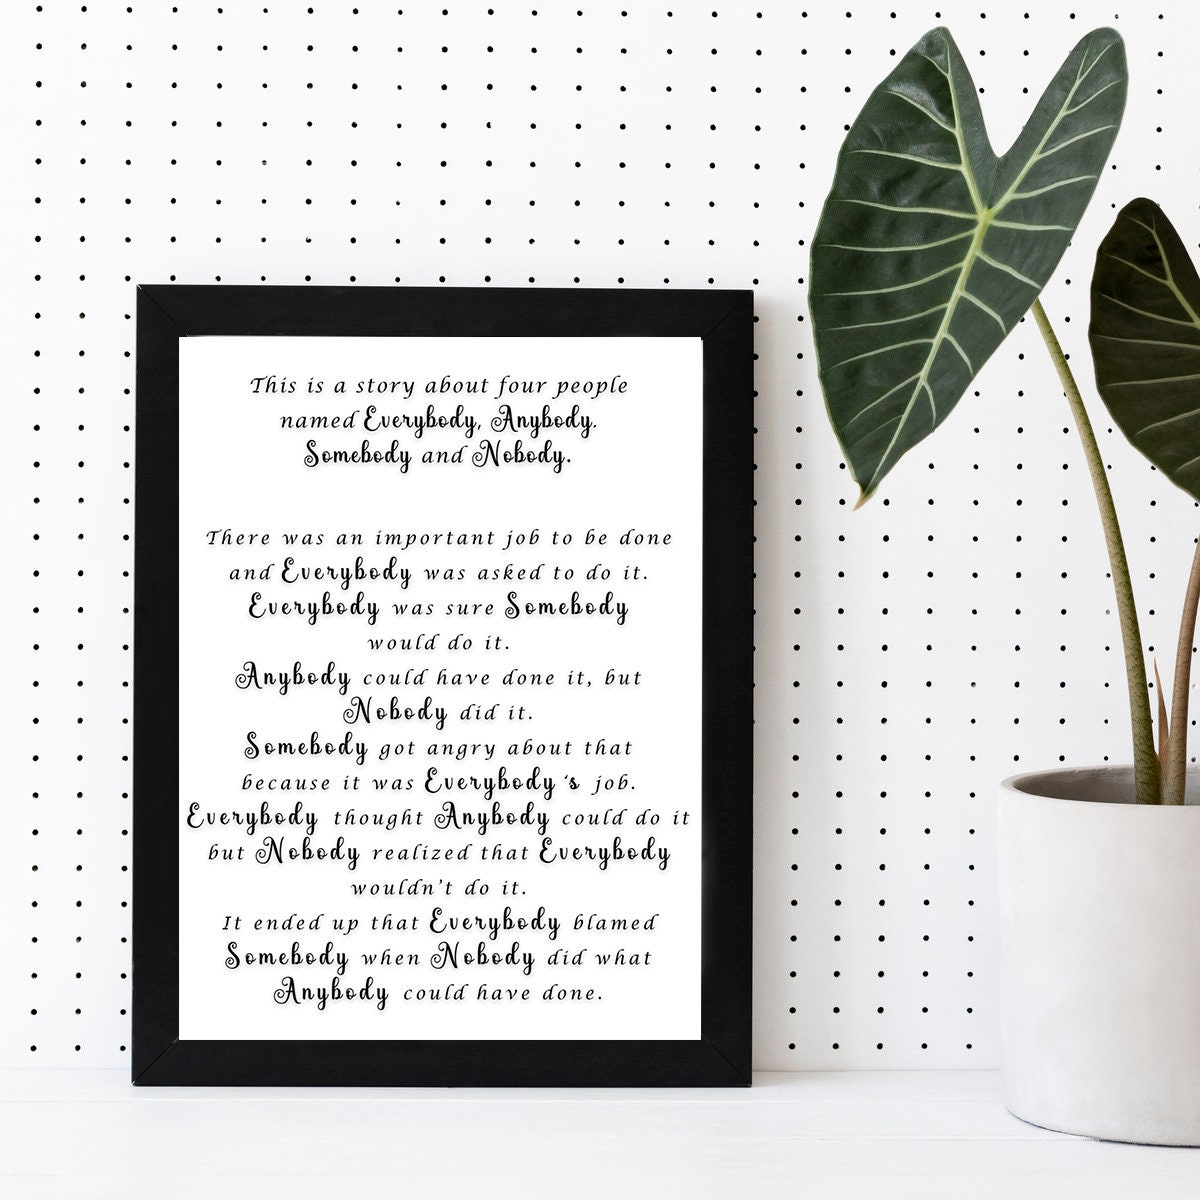 This is a story about four people
named Everybody, Anybody.
Somebody and Nobody.
There was an important job to be done
and Everybody was asked to do it.
Everybody was sure Somebody
would do it.
Anybody could have done it, but
Nobody did it.
Somebody got angry about that
because it was Everybody‘s job.
Everybody thought Anybody could do it
but Nobody realized that Everybody
wouldn’t do it.
It ended up that Everybody blamed
Somebody when Nobody did what
Anybody could have done.